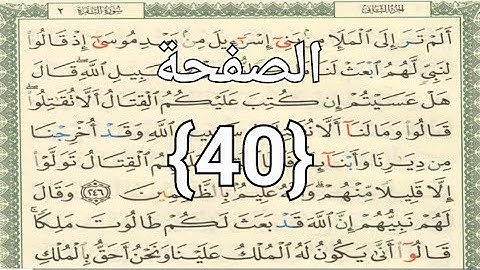 سُورَةُ البَقَرَةِ ٢
الجُزْءُ الثَّانِي
أَلَمْ تَرَ إِلَى الْمَلَإِ بَنِي إِسْرَٰٓءِيلَ مِنْ بَعْدِ مُوسَىٰٓ إِذْ قَالُوا
لِنَبِيٍّ لَهُمُ ابْعَثْ لَنَا سَبِيلِ اللَّهِ ۖ قَالَ
هَلْ عَسَيْتُمْ إِن كُتِبَ عَلَيْكُمُ الْقِتَالُ أَلَّا تُقَٰتِلُوا ۖ
قَالُوا وَمَا لَنَآ أَلَّا اللَّهِ وَقَدْ أُخْرِجْنَا
مِن دِيَٰرِنَا وَأَبْنَآ الْقِتَالُ تَوَلَّوْا
إِلَّا قَلِيلًا مِّنْهُمْ ۗ وَاللَّهُ عَلِيمٌۢ بِالظَّٰلِمِينَ ٢٤٦ وَقَالَ
لَهُمْ نَبِيُّهُمْ إِنَّ اللَّهَ قَدْ بَعَثَ لَكُمْ طَالُوتَ مَلِكًا ۚ
قَالُوٓا أَنَّىٰ يَكُونُ لَهُ الْمُلْكُ عَلَيْنَا وَنَحْنُ أَحَقُّ بِالْمُلْكِ
الصفحة
{40}